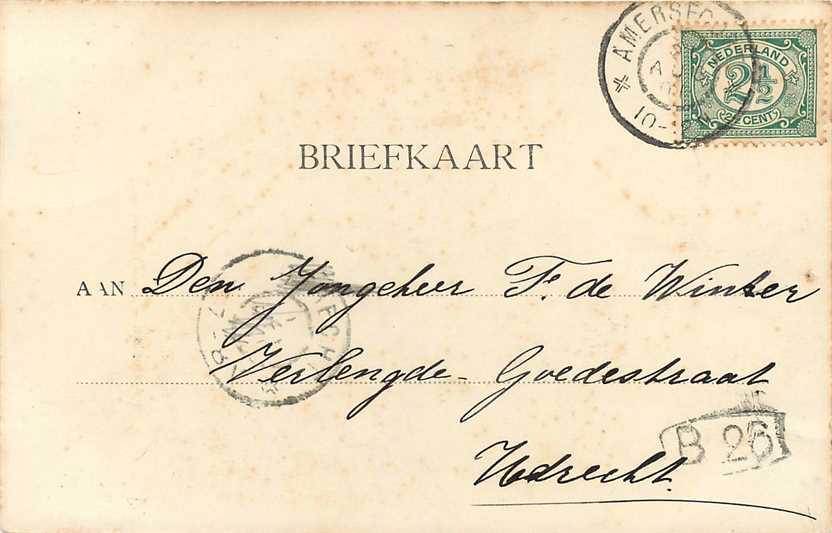 AMERSFO
10-
NEDERLAND
2½
CENT
BRIEFKAART
AAN Den Jongeheer F. de Winter
Verlengde-Goedestraat
B 26
Utrecht.